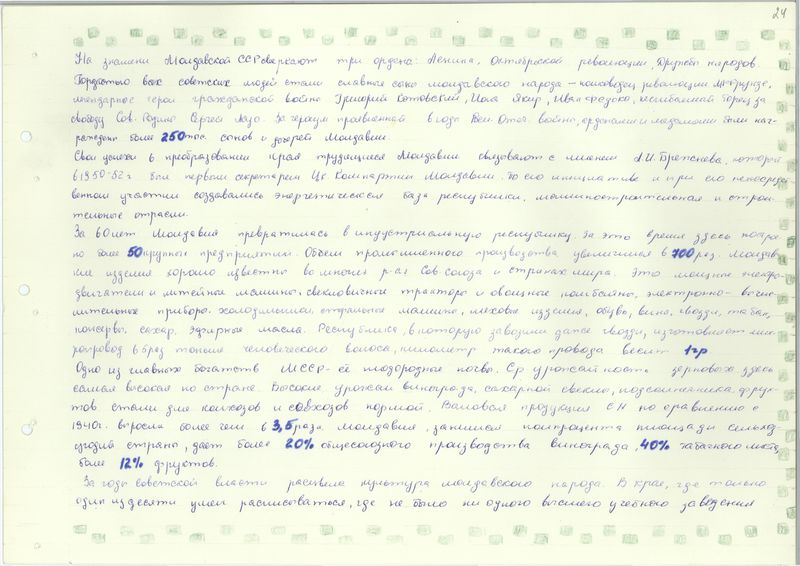 24
На знамени Молдавской ССР сверкают три ордена: Ленина, Октябрьской революции, Дружбы народов.
Гордостью всех советских людей стали славные сыны молдавского народа – полководец революции М.Фрунзе,
легендарные герои гражданской войны Григорий Котовский, Иона Якир, Иван Федько, несгибаемый борец за
свободу Сов. Родины Сергей Лазо. За героизм проявленный в годы Вел. Отеч. войны, орденами и медалями были наг-
раждены более 250 тыс. сынов и дочерей Молдавии.
Свои успехи в преобразовании края трудящиеся Молдавии связывают с именем Л.И. Брежнева, который
в 1950-52 г был первым секретарем Цк. Компартии Молдавии. По его инициативе и при его непосредст-
венном участии создавались энергетическая база республики, машиностроительная и строи-
тельные отрасли.
За 60 лет Молдавия превратилась в индустриальную республику. За это время здесь построе-
но более 50 крупных предприятий. Объем промышленного производства увеличился в 700 раз. Молдавс-
кие изделия хорошо известны во многих р-ах Сов. Союза и странах мира. Это мощные электро-
двигатели и литейные машины, свекловичные тракторы и овощные комбайны, электронно-вычис-
лительные приборы, холодильники, стиральные машины, меховые изделия, обувь, вина, гвозди, табак,
консервы, сахар, эфирные масла. Республика, в которую завозили даже гвозди, изготовляет мик-
ропровод в 6 раз тоньше человеческого волоса, километр такого провода весит 1 гр
Одно из главных богатств МССР – её плодородные почвы. Ср урожайность зерновых здесь
самая высокая по стране. Высокие урожаи винограда, сахарной свеклы, подсолнечника, фрук-
тов стали для колхозов и совхозов нормой. Валовая продукция СХ по сравнению с
1940г. выросла более чем в 3,5 раза. Молдавия, занимая полпроцента площади сельхоз-
угодий страны, дает более 20% общесоюзного производства винограда, 40% табачного листа,
более 12% фруктов.
За годы советской власти расцвела культура молдавского народа. В крае, где только
один из десяти умел расписываться, где не было ни одного высшего учебного заведения